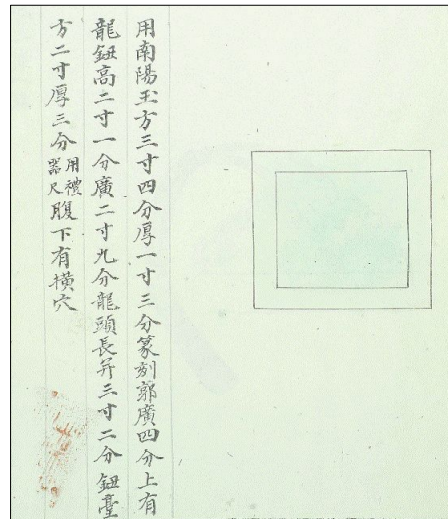 用南陽玉方三寸四分厚一寸三分篆刻郭廣四分上有
龍鈕高二寸一分廣二寸九分龍頭長弁三寸二分鈕臺
方二寸厚三分用禮器尺腹下有横穴